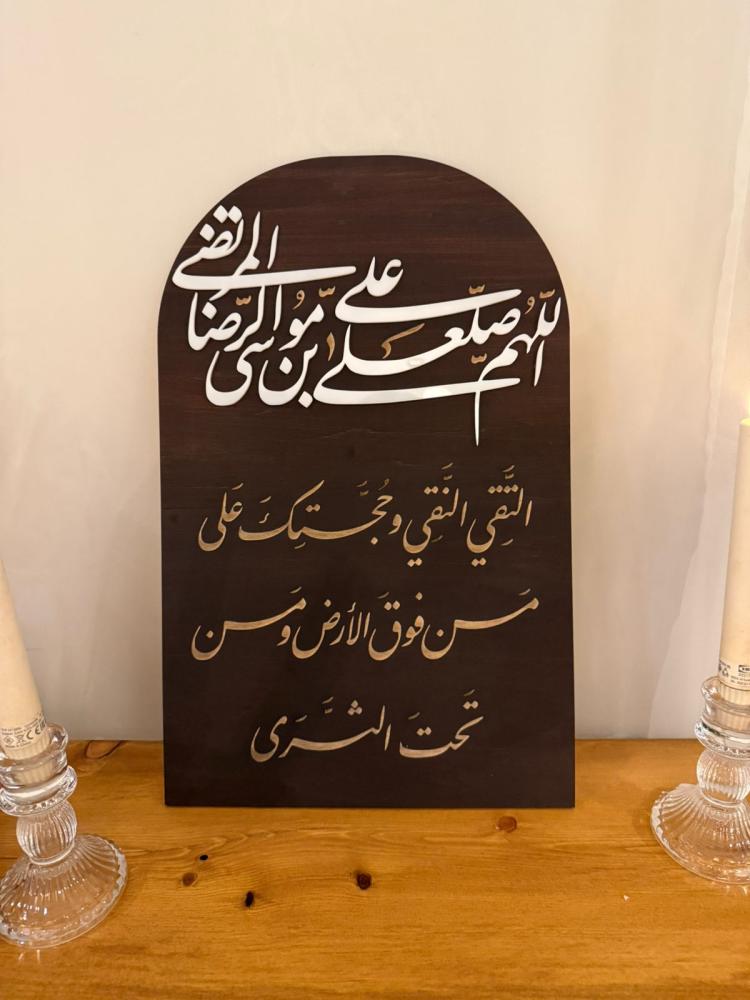 اللّهم صلّ على علي بن موسى الرّضا المرتضى
التَّقِي النَّقِي وحُجَّتِكَ عَلى
مَن فوقَ الأرض ومَن
تَحتَ الثَّرَى